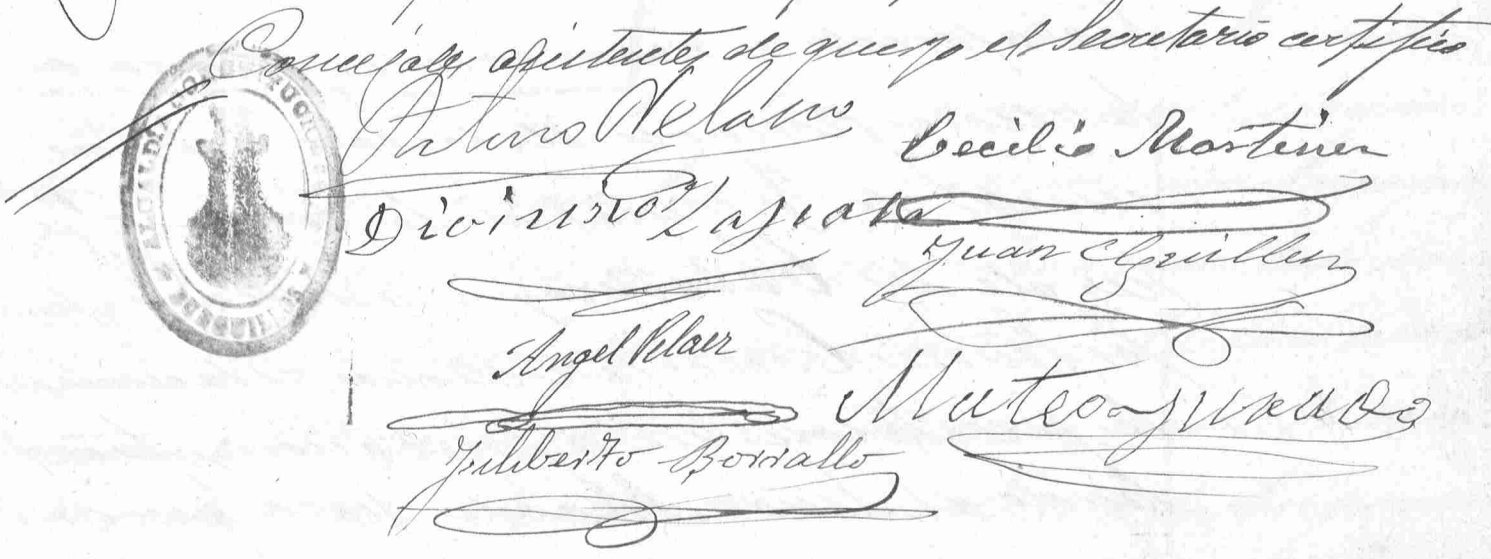 Concejales asistentes de que yo el Secretario certifico
Arturo Velano
Cecilio Martinez
Divino Zapata
Juan Guillen
Angel Pelaez
Mateo Jurado
Filiberto Borrallo
ALCALDIA CONSTITUCIONAL